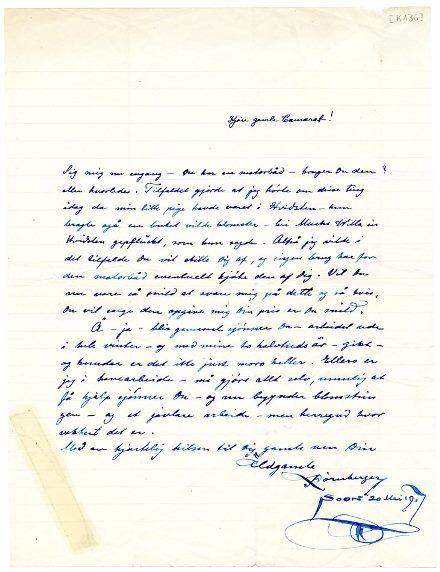 [K136]
Kjöre gamle Camarat!
Sig mig nu engang – Du har en motorbåd – bruger Du den?
eller hvorledes. Tilfeldet gjorde at jeg hörte om disse ting
idag da min lille pige havde været i Hvidsten – hun
bragte også en buket vilde blomster – bei Munks Villa in
Hvidsten gepflückt, som hun sagde. Altså jeg vilde i
det tilfelde Du vil skille Dig af, og ingen brug har for
den motorbåd eventuelt kjöbe den af Dig. Vil Du
nu være så snild at svare mig på dette og så hvis,
Du vil sælge den opgive mig Din pris er Du snild.
Å – ja – bli gammel sjönner Du – arbeidet ude
i hele vinter – og med mine to halvtreds år – gikt –
og bronder er det ikke just moro heller. Ellers er
jeg i havearbeide – må gjöre allt selv, umulig at
få hjelp sjönner Du – og nu begynder blomstrin
gen – og et jävlare arbeide – men herregud hvor
vakkert det er.
Med en hjertelig hilsen til Dig gamle ven Din
Eldgamle
Dörnberger
Soon 20 Mai 19